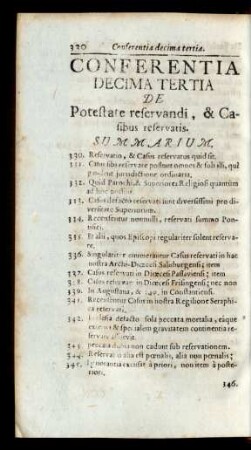 320 Conferentia decima tertia.
CONFERENTIA
DECIMA TERTIA
DE
Potestate reservandi, & Ca-
sibus reservatis.
SUMMARIUM.
330. Reservatio, & Casus reservatus quid sit.
331. Casus sibi reservare possunt omnes & soli illi, qui
jurisdictione ordinaria.
332. Quid Parochi, & Superiores Religiosi quantum
ad hoc possint.
313. Casus de facto reservati sunt diversissimi pro di-
versitate Superiorum.
334. Recensentur nonnulli, reservati summo Pon-
tifici.
Et alii, quos Episcopi regulariter solent reserva-
re.
336. Singulariter enumerantur Casus reservati in hac
nostra Archi-Diœcesi Salisburgensi; item
337. Casus reservati in Diœcesi Passaviensi; item
338. Casus reservati in Diœcesi Frisingensi; nec non
339. In Augustana, & 340. in Constantiensi.
341. Recensentur Casus in nostra Regiſione Seraphi-
ca reservati.
342. Ecclesia defacto sola peccata mortalia, eaque
externa & specialem gravitatem continentia reser-
vare
343. peccata dubia non cadunt sub reservationem.
344. Reservatio alia est pœnalis, alia non pœnalis;
345. Ignorantia excusat à priori, non item à poste-
riori.
346.